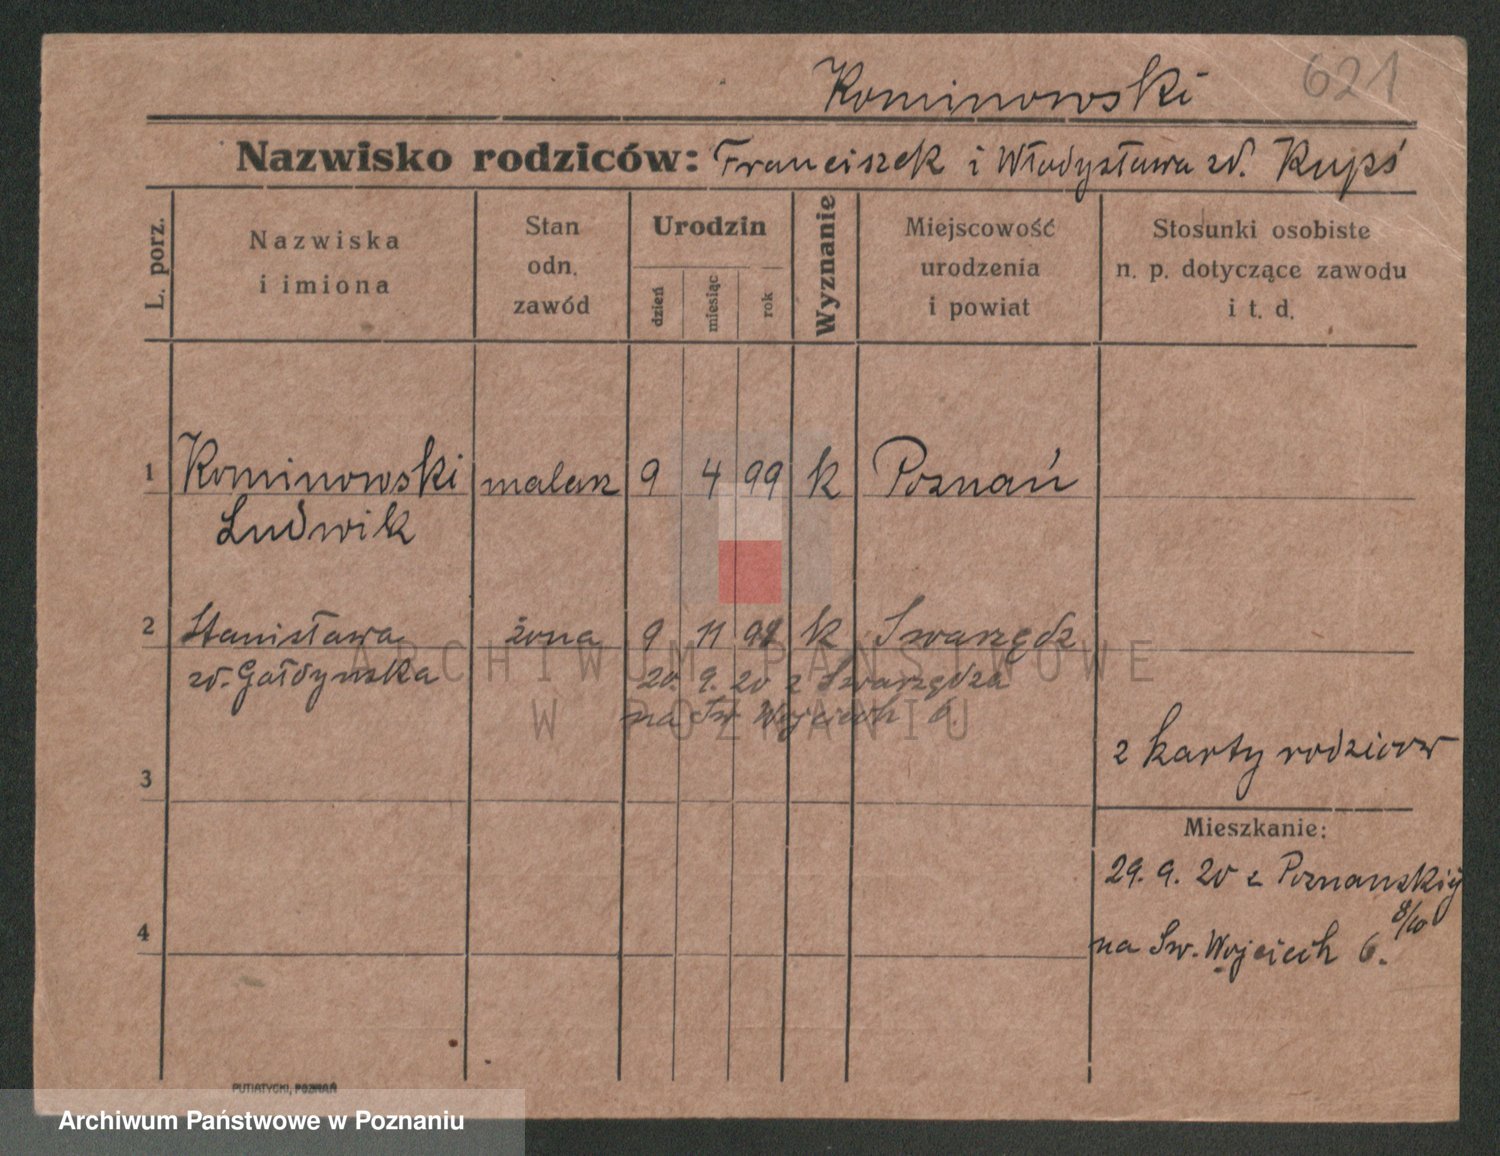 Kominowski 621
Nazwisko rodziców: Franciszek i Władysława zd. Kupś
L. porz.
Nazwiska
i imiona
Stan
odn.
zawód
Urodzin
dzień
miesiąc
rok
Wyznanie
Miejscowość
urodzenia
i powiat
Stosunki osobiste
n. p. dotyczące zawodu
i t. d.
1 Kominowski malarz 9 4 99 k Poznań
Ludwik
2 Stanisława żona 9 11 k Swarzędz
zd. Gołdyńska 20. 9. 20 z Swarzędza
na Św. Wojciech 6.
z karty rodziców
3
Mieszkanie:
29. 9. 20 z Poznańskiej
8/10
4 na Św. Wojciech 6.
PUTIATYCKI, POZNAŃ
ARCHIWUM PAŃSTWOWE
W POZNANIU
Archiwum Państwowe w Poznaniu